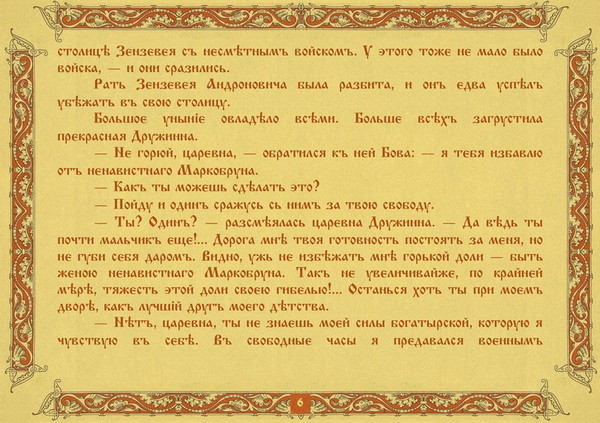 столицѣ Зензевея съ несмѣтнымъ войскомъ. У этого тоже не мало было
войска, — и они сразились.
Рать Зензевея Андроновича была разбита, и онъ едва успѣлъ
убѣжать въ свою столицу.
Большое уныніе овладѣло всѣми. Больше всѣхъ загрустила
прекрасная Дружинна.
— Не горюй, царевна, — обратился къ ней Бова: — я тебя избавлю
отъ ненавистнаго Маркобруна.
— Какъ ты можешь сдѣлать это?
— Пойду и одинъ сражусь съ нимъ за твою свободу.
— Ты? Одинъ? — разсмѣялась царевна Дружинна. — Да вѣдь ты
почти мальчикъ еще!... Дорога мнѣ твоя готовность постоять за меня, но
не губи себя даромъ. Видно, ужь не избѣжать мнѣ горькой доли — быть
женою ненавистнаго Маркобруна. Такъ не увеличивайже, по крайней
мѣрѣ, тяжесть этой доли своею гибелью!... Останься хоть ты при моемъ
дворѣ, какъ лучшій другъ моего дѣтства.
— Нѣтъ, царевна, ты не знаешь моей силы богатырской, которую я
чувствую въ себѣ. Въ свободные часы я предавался военнымъ
6